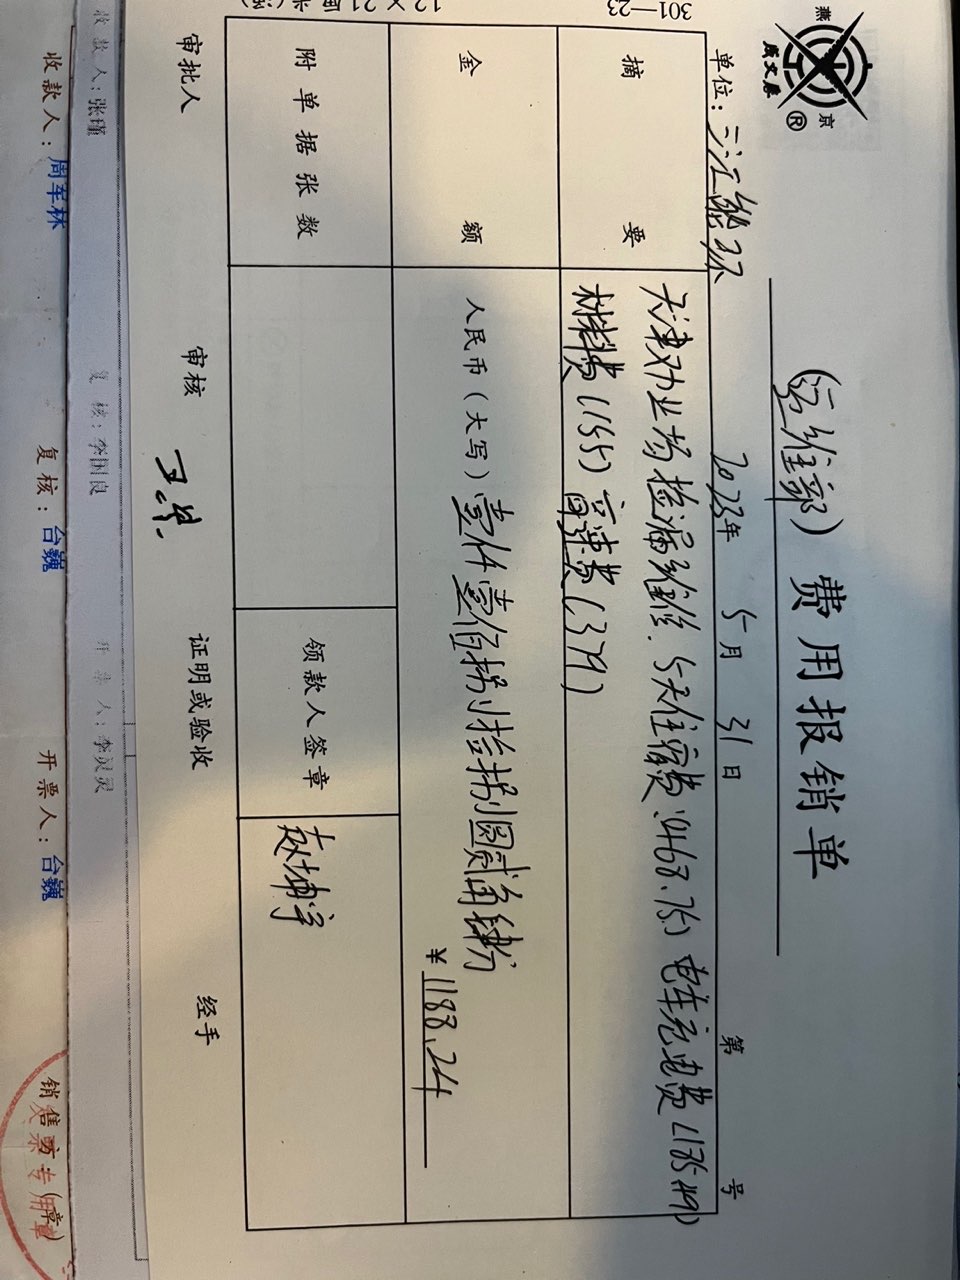 燕
京
成文厚
®
（运维部）费用报销单
单位：三江能环 2023年 5月 31日 第 号
301—23
摘要
天津劝业场检漏维修.5天住宿费(468.75) 电车充电费(185.49)
材料费(155) 高速费(379)
金额
人民币（大写）壹仟壹佰捌拾捌圆贰角肆分
¥1188.24
附单据张数
领款人签章
赵埔宇
审批人 审核 证明或验收 经手
收款人：张瑾 复核：李国良 开票人：李灵灵
收款人：周军林 复核：台巍 开票人：台巍 销售方：(章)
发票专用章